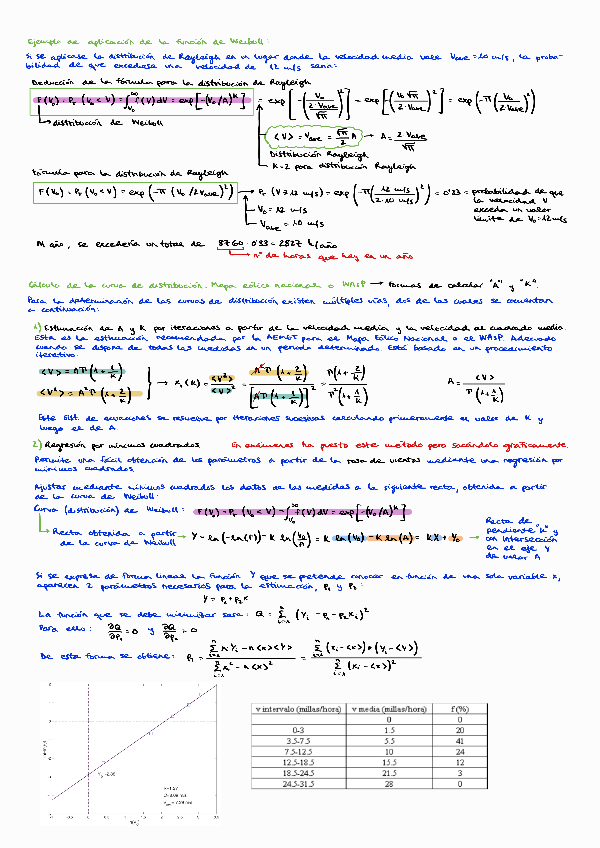 Ejemplo de aplicación de la función de Weibull:
Si se aplicase la distribución de Rayleigh en un lugar donde la velocidad media vale Vave = 10 m/s, la proba-
bilidad de que excediese una velocidad de 12 m/s sería:
Deducción de la fórmula para la distribución de Rayleigh
F(V₀) = Pr (V₀ < V) = ∫_{V₀}^{∞} f(V) dV = exp[-(V₀/A)^K] = exp[-(V₀/(2·Vave/√π))²] = exp[-(V₀√π/(2·Vave))²] = exp(-π(V₀/(2·Vave))²)
distribución de Weibull
<V> = Vave = √π/2 A → A = 2 Vave/√π
Distribución Rayleigh
K=2 para distribución Rayleigh
Fórmula para la distribución de Rayleigh
F(V₀) = Pr (V₀ < V) = exp(-π (V₀/2Vave)²) → Pr (V > 12 m/s) = exp(-π(12 m/s/(2·10 m/s))²) = 0'33 = probabilidad de que
la velocidad V
exceda un valor
límite de V₀ = 12 m/s
V₀ = 12 m/s
Vave = 10 m/s
Al año, se excedería un total de 8760 · 0'33 = 2827 h/año
nº de horas que hay en un año
Cálculo de la curva de distribución. Mapa eólico nacional o WAsP → formas de calcular "A" y "K".
Para la determinación de las curvas de distribución existen múltiples vías, dos de las cuales se comentan
a continuación:
1) Estimación de A y K por iteraciones a partir de la velocidad media y la velocidad al cuadrado media.
Esta es la estimación recomendada por la AEMET para el Mapa Eólico Nacional o el WAsP. Adecuado
cuando se dispone de todas las medidas en un periodo determinado. Está basado en un procedimiento
iterativo.
<V> = AΓ(1+1/K)
<V²> = A²Γ(1+2/K)
→ X₁(K) = <V²>/<V>² = A²Γ(1+2/K)/[AΓ(1+1/K)]² = Γ(1+2/K)/Γ²(1+1/K)
A = <V>/Γ(1+1/K)
Este sist. de ecuaciones se resuelve por iteraciones sucesivas calculando primeramente el valor de K y
luego el de A.
2) Regresión por mínimos cuadrados. En exámenes ha puesto este método pero sacándolo gráficamente.
Permite una fácil obtención de los parámetros a partir de la rosa de vientos mediante una regresión por
mínimos cuadrados.
Ajustar mediante mínimos cuadrados los datos de las medidas a la siguiente recta, obtenida a partir
de la curva de Weibull:
Curva (distribución) de Weibull: F(V₀) = Pr (V₀ < V) = ∫_{V₀}^{∞} f(V) dV = exp[-(V₀/A)^K]
Recta obtenida a partir
de la curva de Weibull
Y = ln(-ln(F)) = K ln(V₀/A) = K ln(V₀) - K ln(A) = KX + Y₀
Recta de
pendiente "K" y
con intersección
en el eje Y
de valor A
Si se expresa de forma lineal la función Y que se pretende conocer en función de una sola variable x,
aparecen 2 parámetros necesarios para la estimación, p₁ y p₂:
Y = p₁ + p₂x
La función que se debe minimizar será: Q = Σ (Yᵢ - p₁ - p₂xᵢ)²
Para ello: ∂Q/∂p₁ = 0 y ∂Q/∂p₂ = 0
De esta forma se obtiene:
v intervalo (millas/hora) v media (millas/hora) f (%)
0 0
0-3 1.5 20
3.5-7.5 5.5 41
7.5-12.5 10 24
12.5-18.5 15.5 12
18.5-24.5 21.5 3
24.5-31.5 28 0